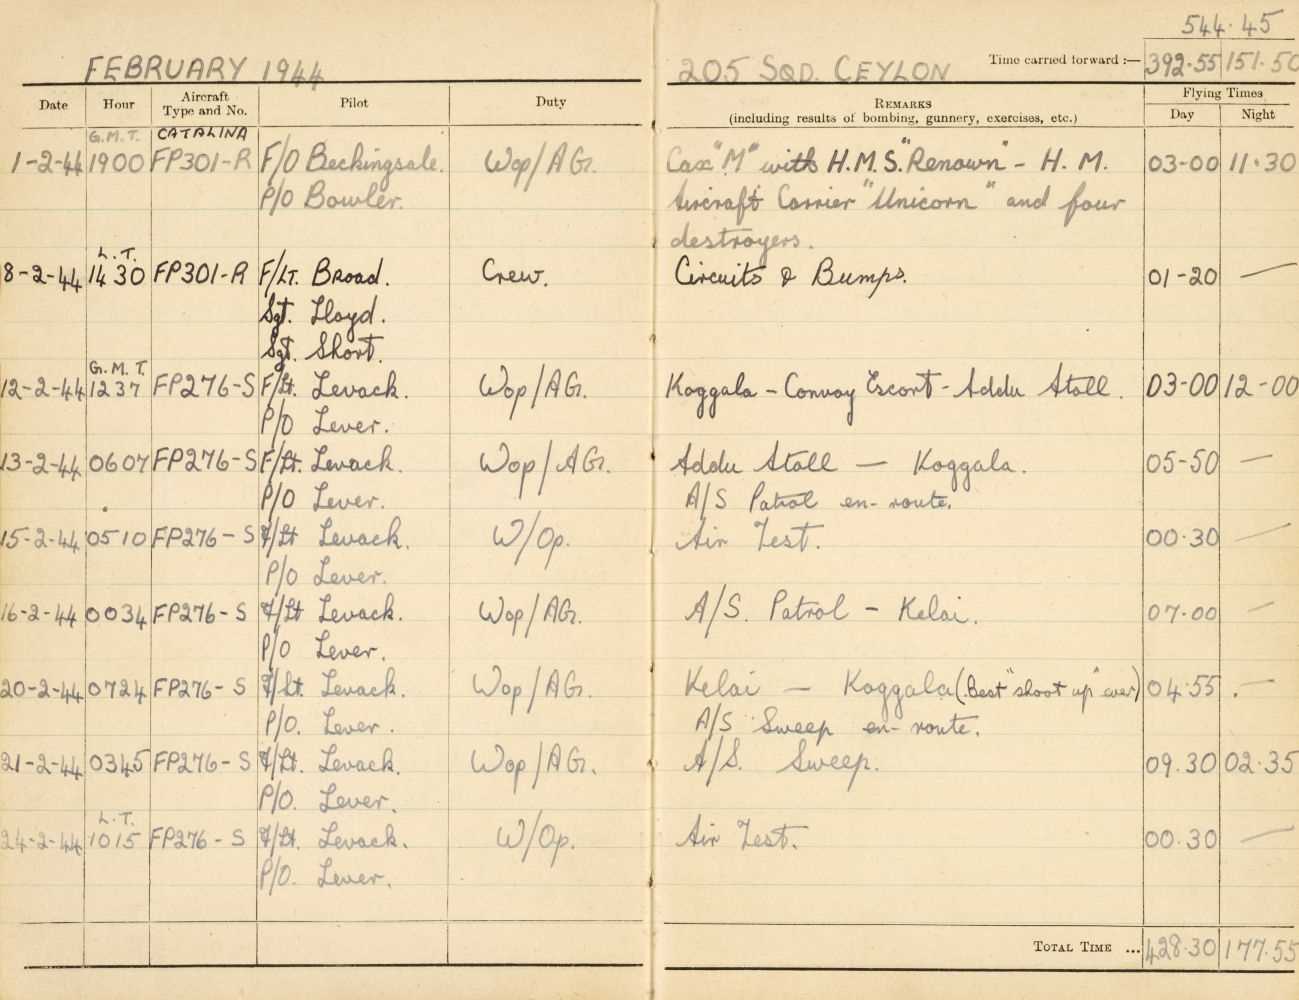 544.45
FEBRUARY 1944 205 SQD. CEYLON Time carried forward :— 392.55 151.50
Date Hour Aircraft Type and No. Pilot Duty REMARKS (including results of bombing, gunnery, exercises, etc.) Flying Times Day Night
G.M.T. CATALINA
1-2-44 1900 FP301-R F/O Beckingsale. Wop/AG. "M" with H.M.S. "Renown" - H.M. 03-00 11.30
P/O Bowler. Aircraft Carrier "Unicorn" and four
destroyers.
L.T.
8-2-44 1430 FP301-R F/Lt. Broad. Crew. Circuits & Bumps. 01-20 —
Sgt. Lloyd.
Sgt. Short.
G.M.T.
12-2-44 1237 FP276-S F/Lt. Levack. Wop/AG. Koggala - Convoy Escort - Addu Atoll. 03-00 12-00
P/O Lever.
13-2-44 0607 FP276-S F/Lt. Levack. Wop/AG. Addu Atoll — Koggala. 05-50 —
P/O Lever. A/S Patrol en-route.
15-2-44 0510 FP276-S F/Lt Levack. W/Op. Air Test. 00.30 —
P/O Lever.
16-2-44 0034 FP276-S F/Lt Levack. Wop/AG. A/S. Patrol - Kelai. 07.00 —
P/O Lever.
20-2-44 0724 FP276-S F/Lt. Levack. Wop/AG. Kelai — Koggala (Best "shoot up" ever) 04.55 —
P/O. Lever. A/S Sweep en-route.
21-2-44 0345 FP276-S F/Lt. Levack. Wop/AG. A/S. Sweep. 09.30 02.35
P/O. Lever.
L.T.
24-2-44 1015 FP276-S F/Lt. Levack. W/Op. Air Test. 00.30 —
P/O. Lever.
TOTAL TIME ... 428.30 177.55